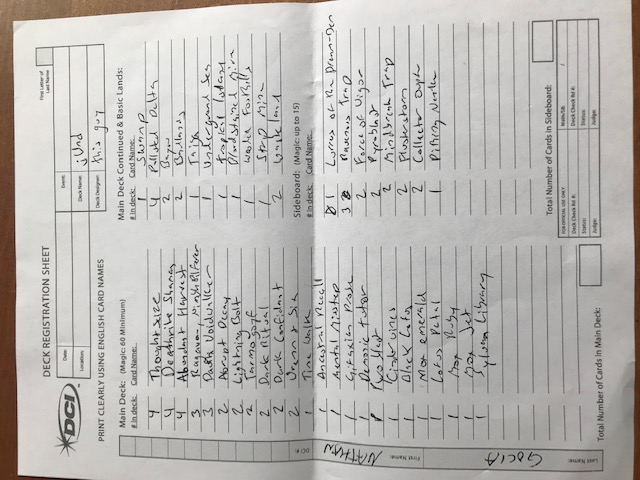 DECK REGISTRATION SHEET
First Letter of Last Name
DCI
Date:
Event:
Location:
Deck Name: jUnd
Deck Designer: this guy
PRINT CLEARLY USING ENGLISH CARD NAMES
Main Deck: (Magic: 60 Minimum)
# in deck: Card Name:
4 Thoughtseize
4 Deathrite Shaman
4 Abundant Harvest
3 Ragavan, Nimble Pilferer
3 Dauthi Voidwalker
2 Abrupt Decay
2 Lightning Bolt
2 Tarmogoyf
2 Dark Ritual
2 Dark Confidant
2 Urenn + Six
1 Time Walk
1 Ancestral Recall
1 Mental Misstep
1 Gitaxian Probe
1 Demonic Tutor
1 Pyroblast
1 Cindervines
1 Black Lotus
1 Mox emerald
1 Lotus Petal
1 Mox Ruby
1 Mox Jet
1 Sylvan Library
Total Number of Cards in Main Deck:
Main Deck Continued & Basic Lands:
# in deck: Card Name:
1 Swamp
4 Polluted Delta
2 Bayou
2 Badlands
1 Taiga
1 Underground Sea
1 Tropical Island
1 Bloodstained Mire
1 Wooded Foothills
1 Strip Mine
2 Wasteland
Sideboard: (Magic: up to 15)
# in deck: Card Name:
1 Lurrus of the Dream-Den
3 Ravenous Trap
2 Force of Vigor
2 Pyroblast
2 Mindbreak Trap
2 Flusterstorm
2 Collector Ouphe
1 Pithing Needle
Total Number of Cards in Sideboard:
FOR OFFICIAL USE ONLY
Main/SB: /
Deck Check Rd #:
Deck Check Rd #:
Status:
Status:
Judge:
Judge:
Last Name: GOCIA
First Name: NATHAN
DCI #: